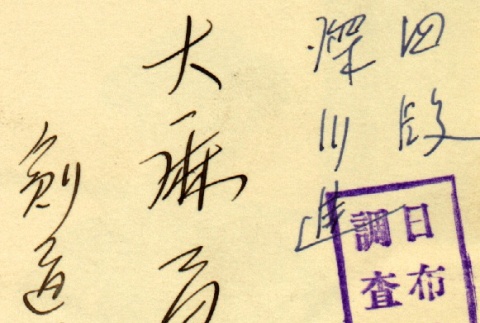 四段
深川進
大麻哥
剣道
日布
調査